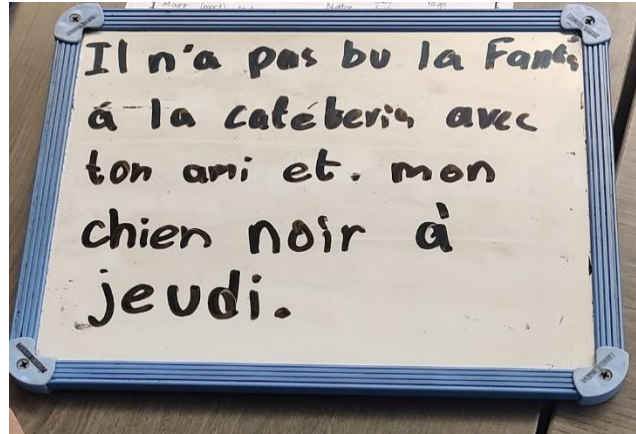 Il n'a pas bu la Fanta
à la caféteria avec
ton ami et. mon
chien noir à
jeudi.